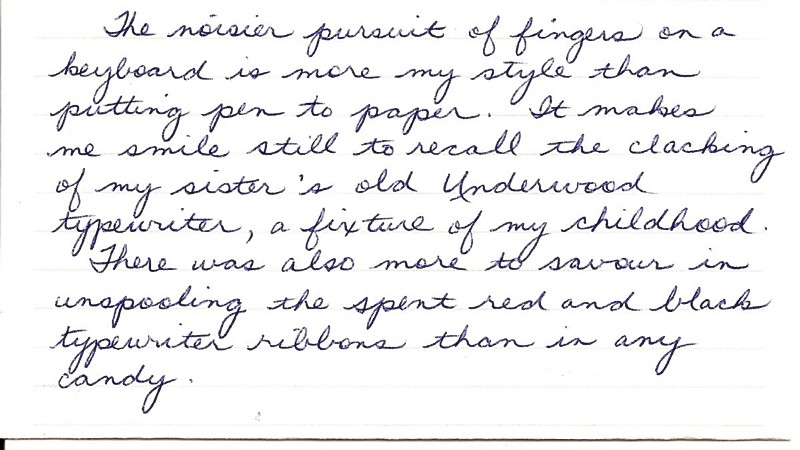 The noisier pursuit of fingers on a
keyboard is more my style than
putting pen to paper. It makes
me smile still to recall the clacking
of my sister's old Underwood
typewriter, a fixture of my childhood.
There was also more to savour in
unspooling the spent red and black
typewriter ribbons than in any
candy.